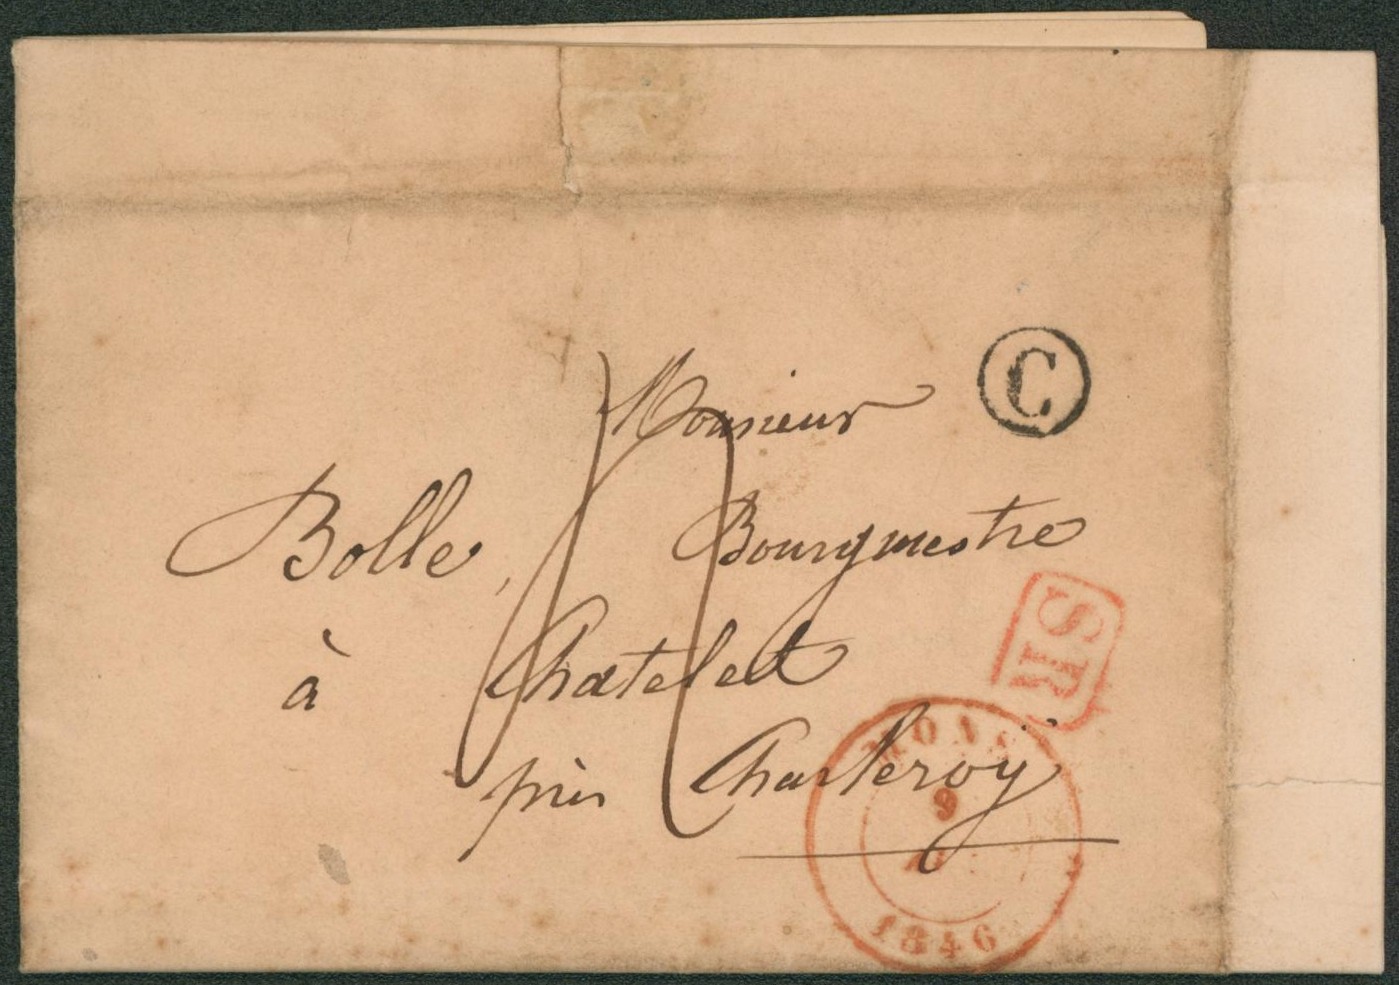 Monsieur
C
Bolle, Bourgmestre
SR
à Chatelet
près Charleroy
MONS
9
1846